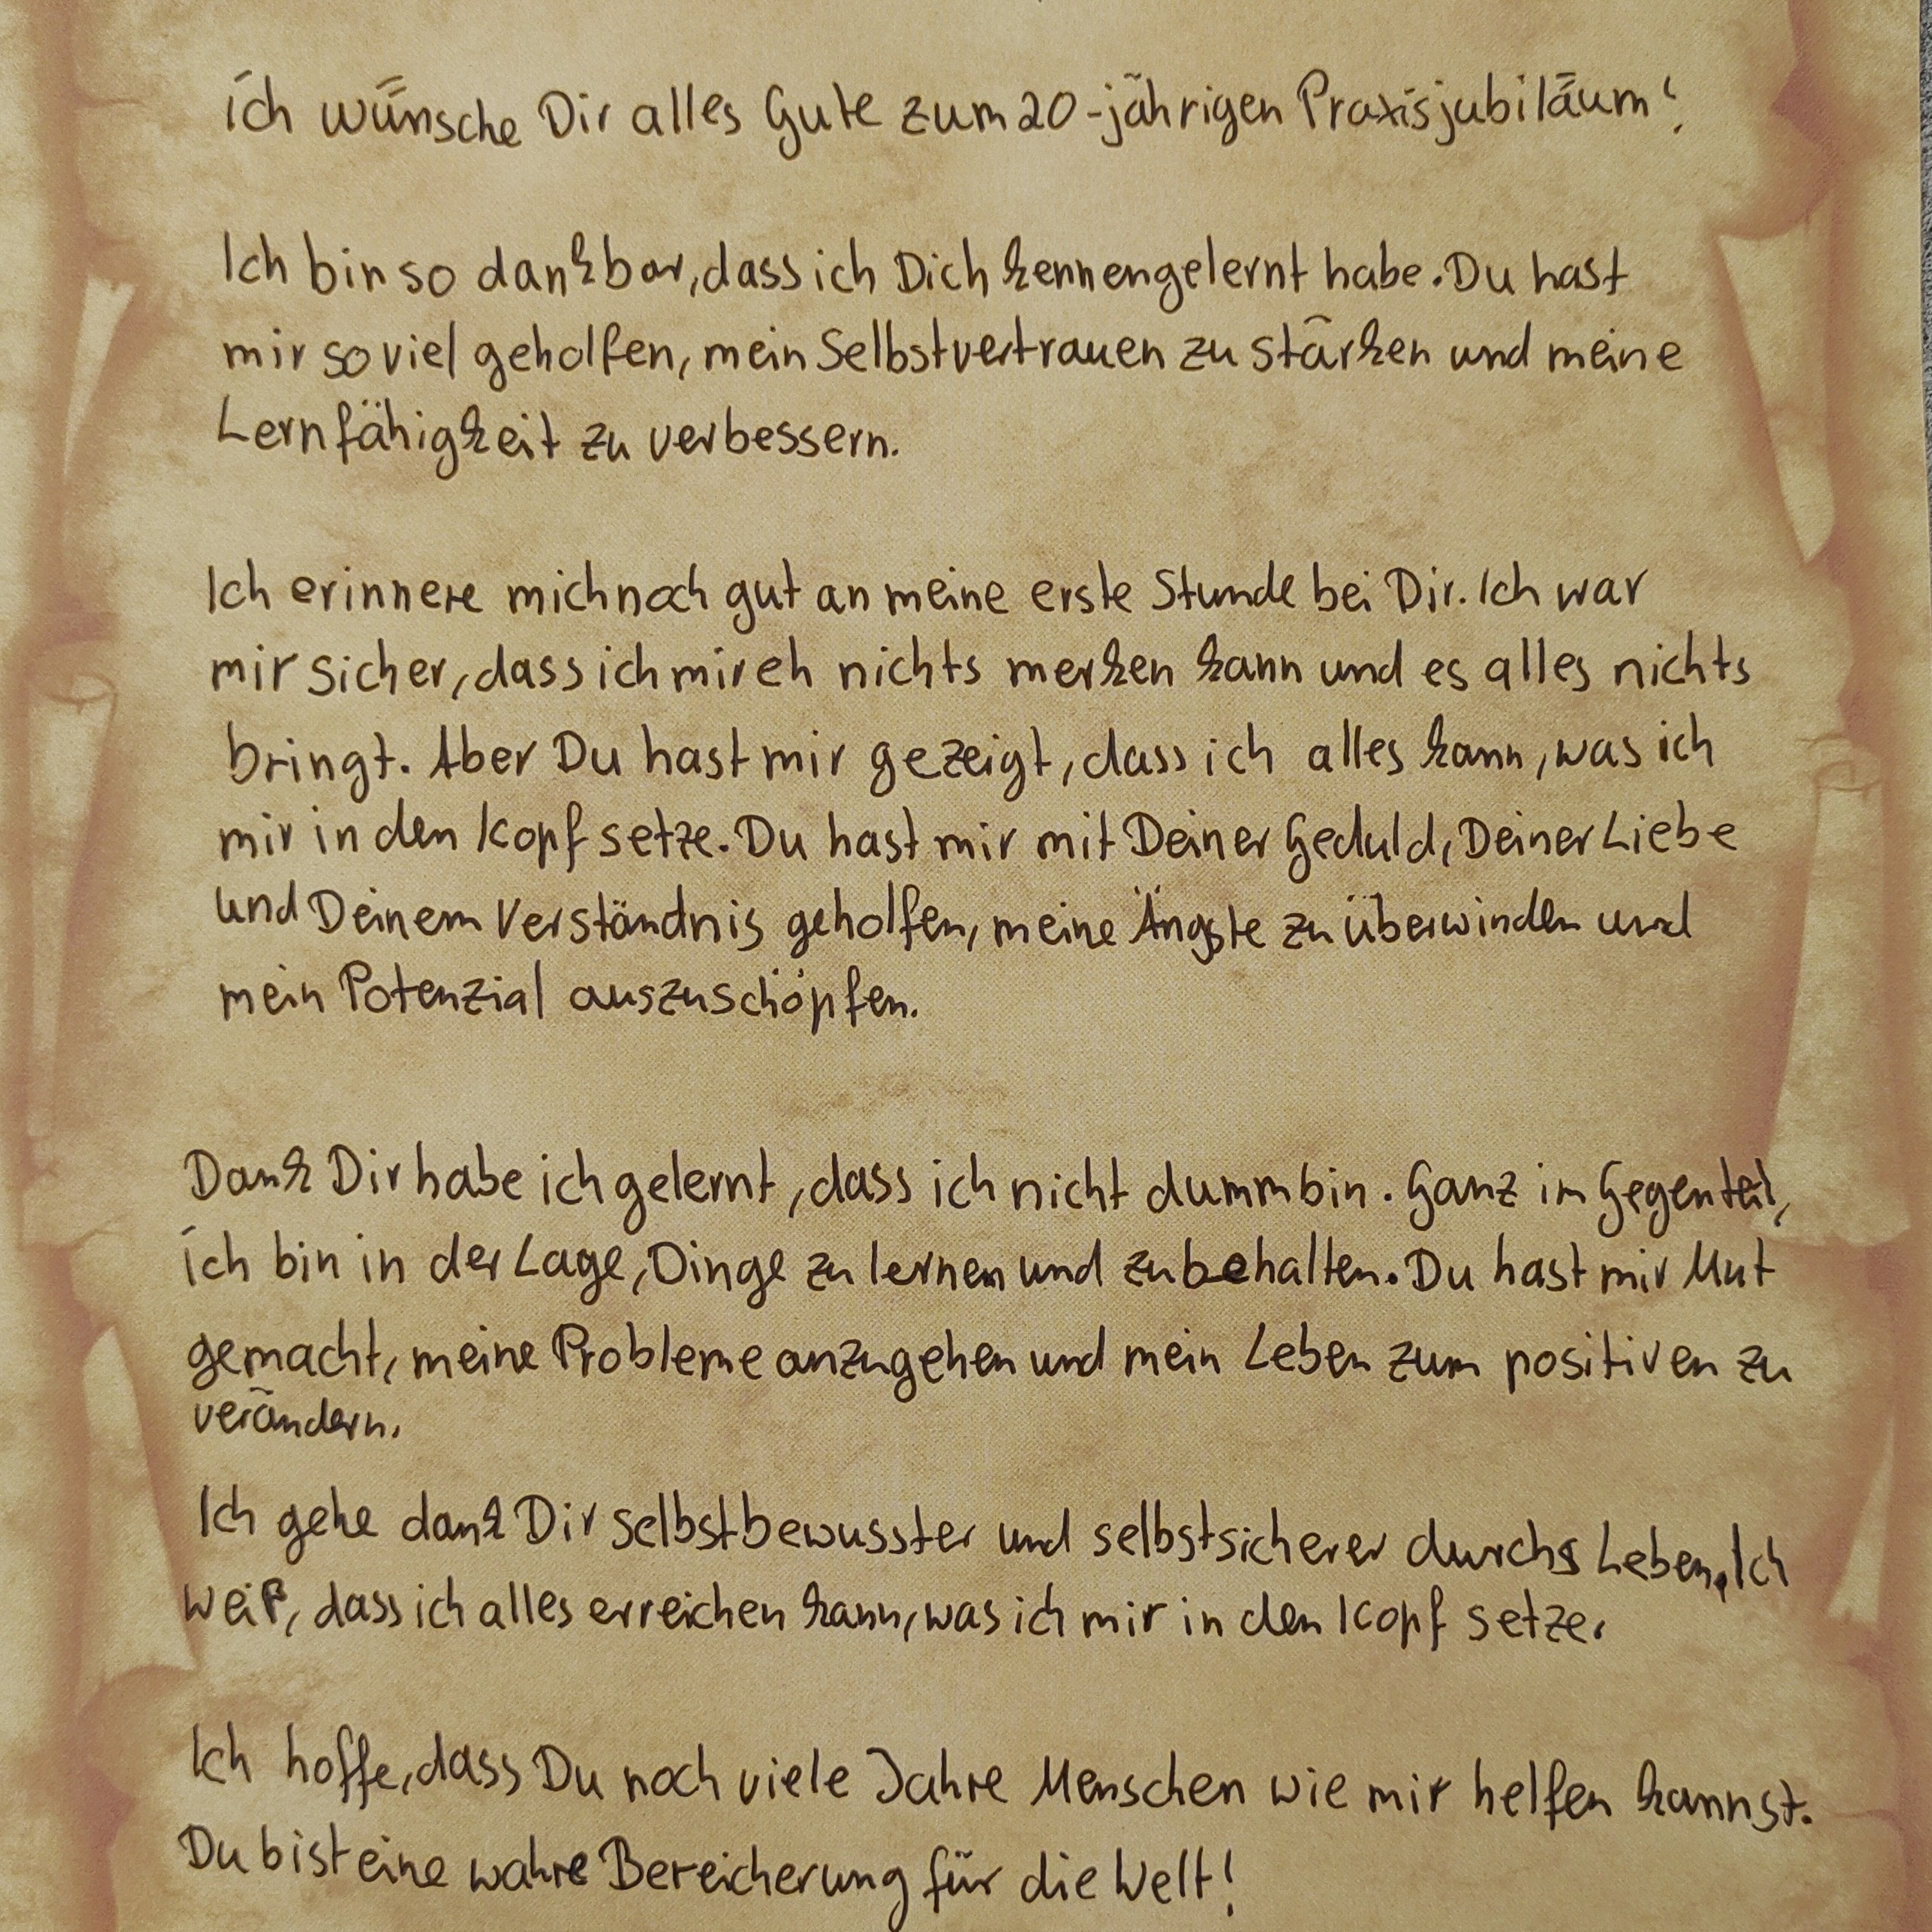 ich wünsche Dir alles Gute zum 20-jährigen Praxisjubiläum!
Ich bin so dankbar, dass ich Dich kennengelernt habe. Du hast
mir so viel geholfen, mein Selbstvertrauen zu stärken und meine
Lernfähigkeit zu verbessern.
Ich erinnere mich noch gut an meine erste Stunde bei Dir. Ich war
mir sicher, dass ich mir eh nichts merken kann und es alles nichts
bringt. Aber Du hast mir gezeigt, dass ich alles kann, was ich
mir in den Kopf setze. Du hast mir mit Deiner Geduld, Deiner Liebe
und Deinem Verständnis geholfen, meine Ängste zu überwinden und
mein Potenzial auszuschöpfen.
Dank Dir habe ich gelernt, dass ich nicht dumm bin. Ganz im Gegenteil,
ich bin in der Lage, Dinge zu lernen und zu behalten. Du hast mir Mut
gemacht, meine Probleme anzugehen und mein Leben zum positiven zu
verändern.
Ich gehe dank Dir selbstbewusster und selbstsicherer durchs Leben. Ich
weiß, dass ich alles erreichen kann, was ich mir in den Kopf setze.
Ich hoffe, dass Du noch viele Jahre Menschen wie mir helfen kannst.
Du bist eine wahre Bereicherung für die Welt!